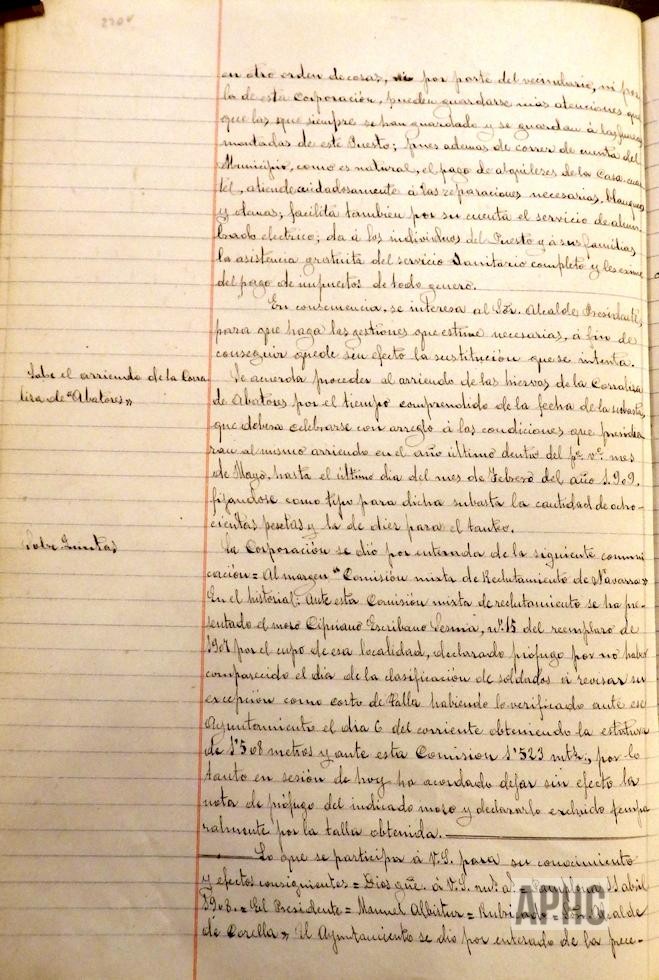 220v
en otro orden de cosas, ni por parte del vecindario, ni por
la de esta Corporación, pueden guardarse mas atenciones que
que las que siempre se han guardado y se guardan á las fuerzas
montadas de este Puesto; pues ademas de correr de cuenta del
Municipio, como es natural, el pago de alquileres de la Casa cuar
tel, atiende cuidadosamente á las reparaciones necesarias, blanqueo
y demas; facilita tambien por su cuenta el servicio de alum-
brado electrico; da á los individuos del Puesto y á sus familias
la asistencia gratuita del servicio Sanitario completo y les exime
del pago de impuestos de todo genero.
En consecuencia, se interesa al Sór. Alcalde Presidente,
para que haga las gestiones que estime necesarias, á fin de
conseguir quede sin efecto la sustitución que se intenta.
Sobre el arriendo de la Corra
liza de "Abatores"
Se acuerda proceder al arriendo de las hierbas de la Corraliza
de Abatores por el tiempo comprendido de la fecha de la subasta,
que deberá celebrarse con arreglo á las condiciones que presidie
ron al mismo arriendo en el año último dentro del pº. vº. mes
de Mayo, hasta el último dia del mes de Febrero del año 1.909,
fijandose como tipo para dicha subasta la cantidad de ocho-
cientas pesetas y la de diez para el tanteo.
Sobre Quintas
La Corporación se dió por enterada de la siguiente comuni
cación = Al margen "Comisión mixta de Reclutamiento de Navarra"
En el historial: Ante esta Comisión mixta de reclutamiento se ha pre-
sentado el mozo Cipriano Escribano Sesma, nº. 15 del reemplazo de
1907 por el cupo de esa localidad, declarado prófugo por no haber
comparecido el dia de la clasificación de soldados á revisar su
excepción como corto de talla habiendolo verificado ante ese
Ayuntamiento el dia 6 del corriente obteniendo la estatura
de 1'508 metros y ante esta Comisión 1'523 mts., por lo
tanto en sesión de hoy ha acordado dejar sin efecto la
nota de prófugo del indicado mozo y declararlo excluido tempo
ralmente por la talla obtenida.
Lo que se participa á V.S. para su conocimiento
y efectos consiguientes = Dios gue. á V.S. ms. as. = Pamplona 11 abril
1908. = El Presidente = Manuel Albistur = Rubricado = Sór. Alcalde
de Corella" El Ayuntamiento se dio por enterado de la prece-
APHC